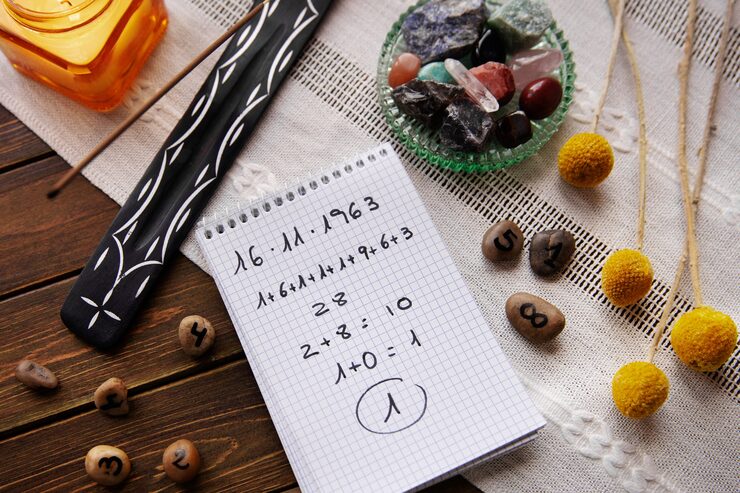 16.11.1963
1+6+1+1+1+9+6+3
28
2+8 = 10
1+0 = 1
1
5
8
4
3
2